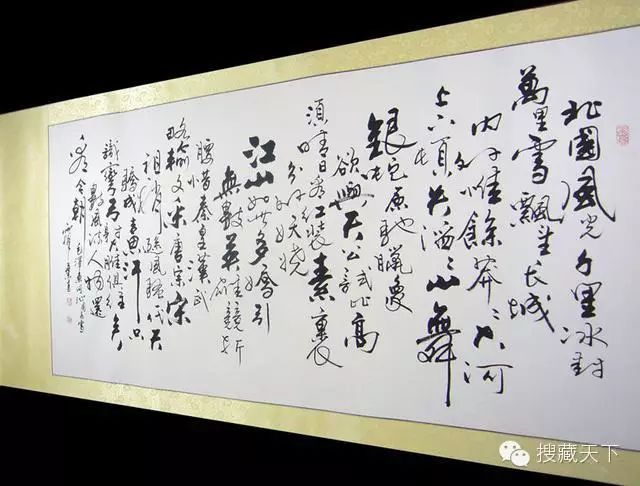 北國風光千里冰封
萬里雪飄望长城
内外惟餘莽々大河
上下頓失滔々山舞
銀蛇原驰蠟象
欲與天公試比高
須晴日看红装素裹
分外妖娆
江山如此多娇引
無數英雄競折
腰惜秦皇漢武
略輸文采唐宗宋
祖稍逊風騷一代天
驕成吉思汗只
識彎弓射大雕俱往矣
數風流人物還
看今朝
搜藏天下